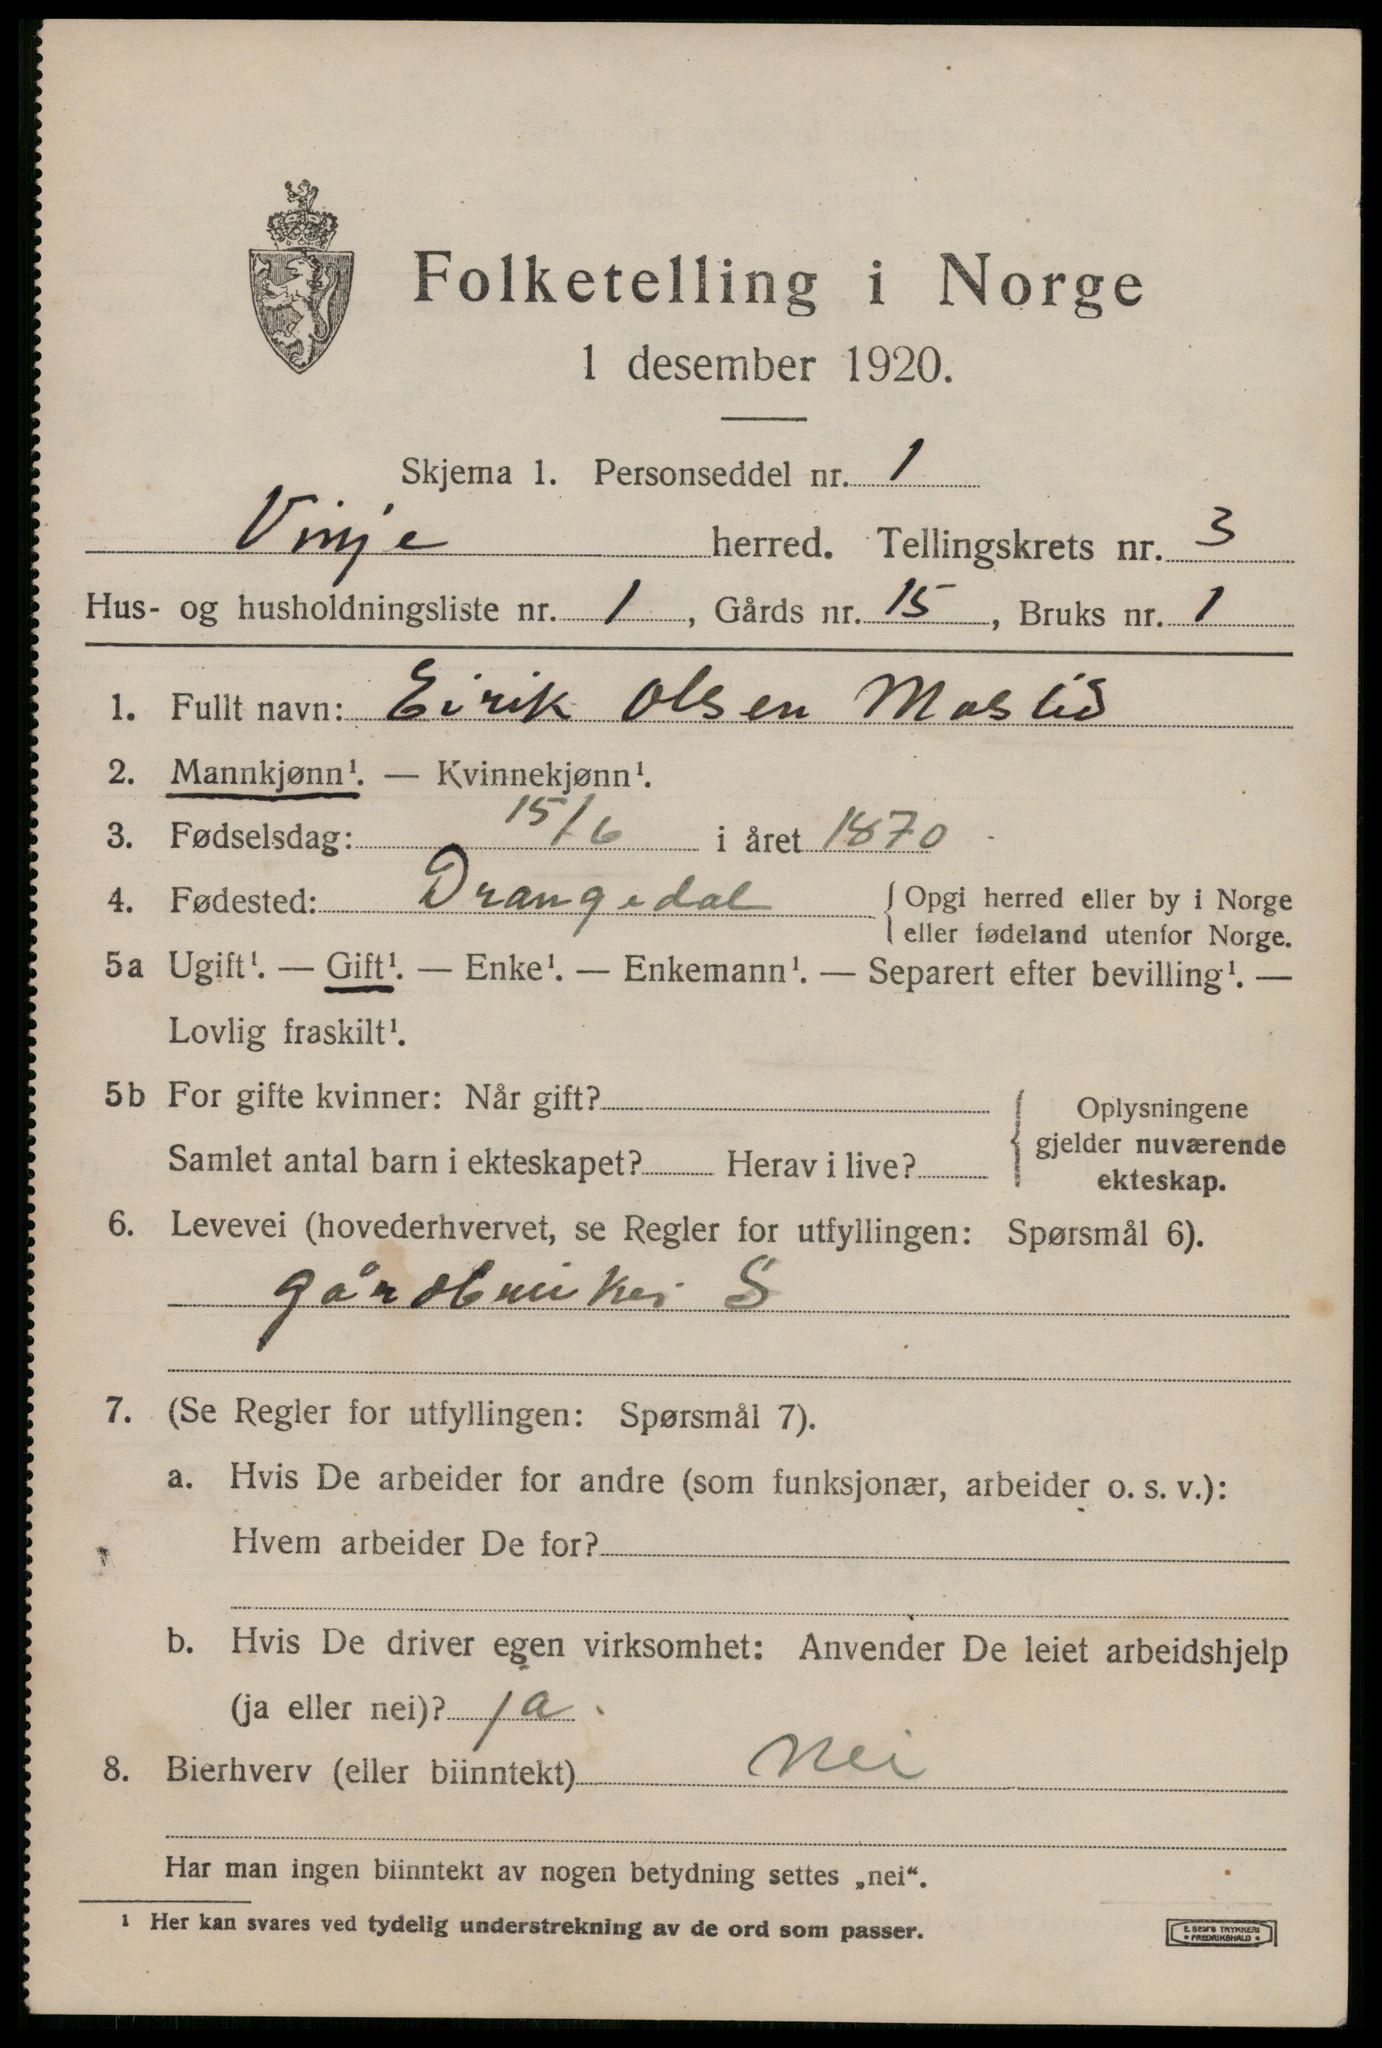 Folketelling i Norge
1 desember 1920.
Skjema 1. Personseddel nr. 1
Vinje herred. Tellingskrets nr. 3
Hus- og husholdningsliste nr. 1, Gårds nr. 15, Bruks nr. 1
1. Fullt navn: Eirik Olsen Moslid
2. Mannkjønn¹. — Kvinnekjønn¹.
3. Fødselsdag: 15/6 i året 1870
4. Fødested: Drangedal { Opgi herred eller by i Norge
eller fødeland utenfor Norge.
5a Ugift¹. — Gift¹. — Enke¹. — Enkemann¹. — Separert efter bevilling¹. —
Lovlig fraskilt¹.
5b For gifte kvinner: Når gift?
Samlet antal barn i ekteskapet? Herav i live?
{ Oplysningene
gjelder nuværende
ekteskap.
6. Levevei (hovederhvervet, se Regler for utfyllingen: Spørsmål 6).
gårdbruker S
7. (Se Regler for utfyllingen: Spørsmål 7).
a. Hvis De arbeider for andre (som funksjonær, arbeider o. s. v.):
Hvem arbeider De for?
b. Hvis De driver egen virksomhet: Anvender De leiet arbeidshjelp
(ja eller nei)? ja
8. Bierhverv (eller biinntekt) Nei
Har man ingen biinntekt av nogen betydning settes „nei“.
¹ Her kan svares ved tydelig understrekning av de ord som passer.
E. SEM'S TRYKKERI
• FREDRIKSHALD •